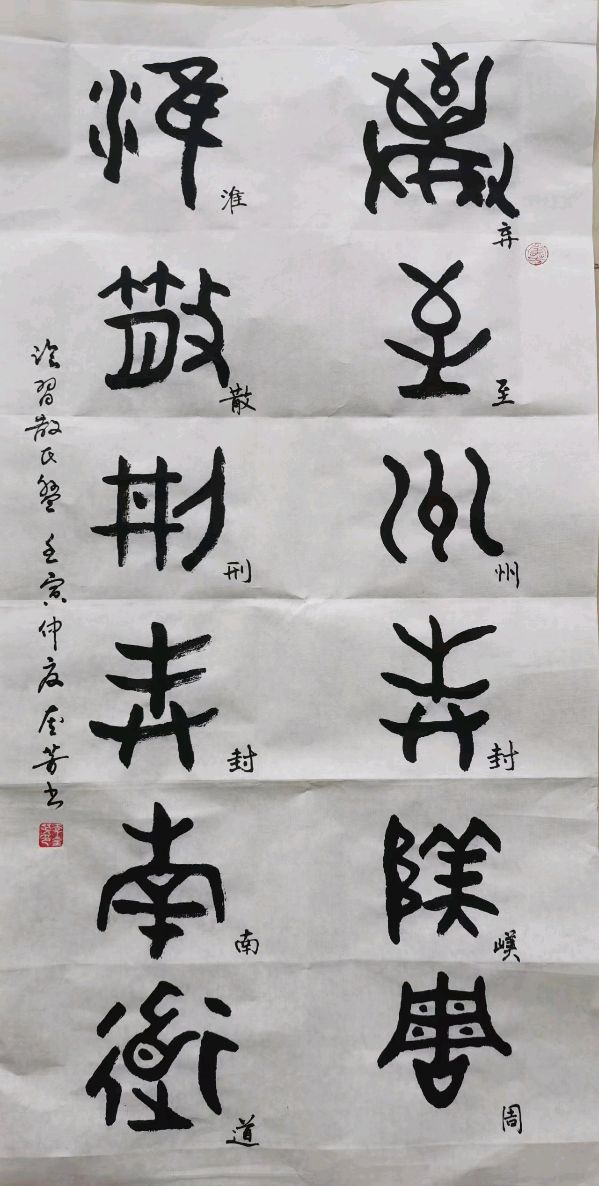 弃 至 州 封 嶫 周
淮 散 刑 封 南 道
临习散氏盘 壬寅仲夏 金芳书